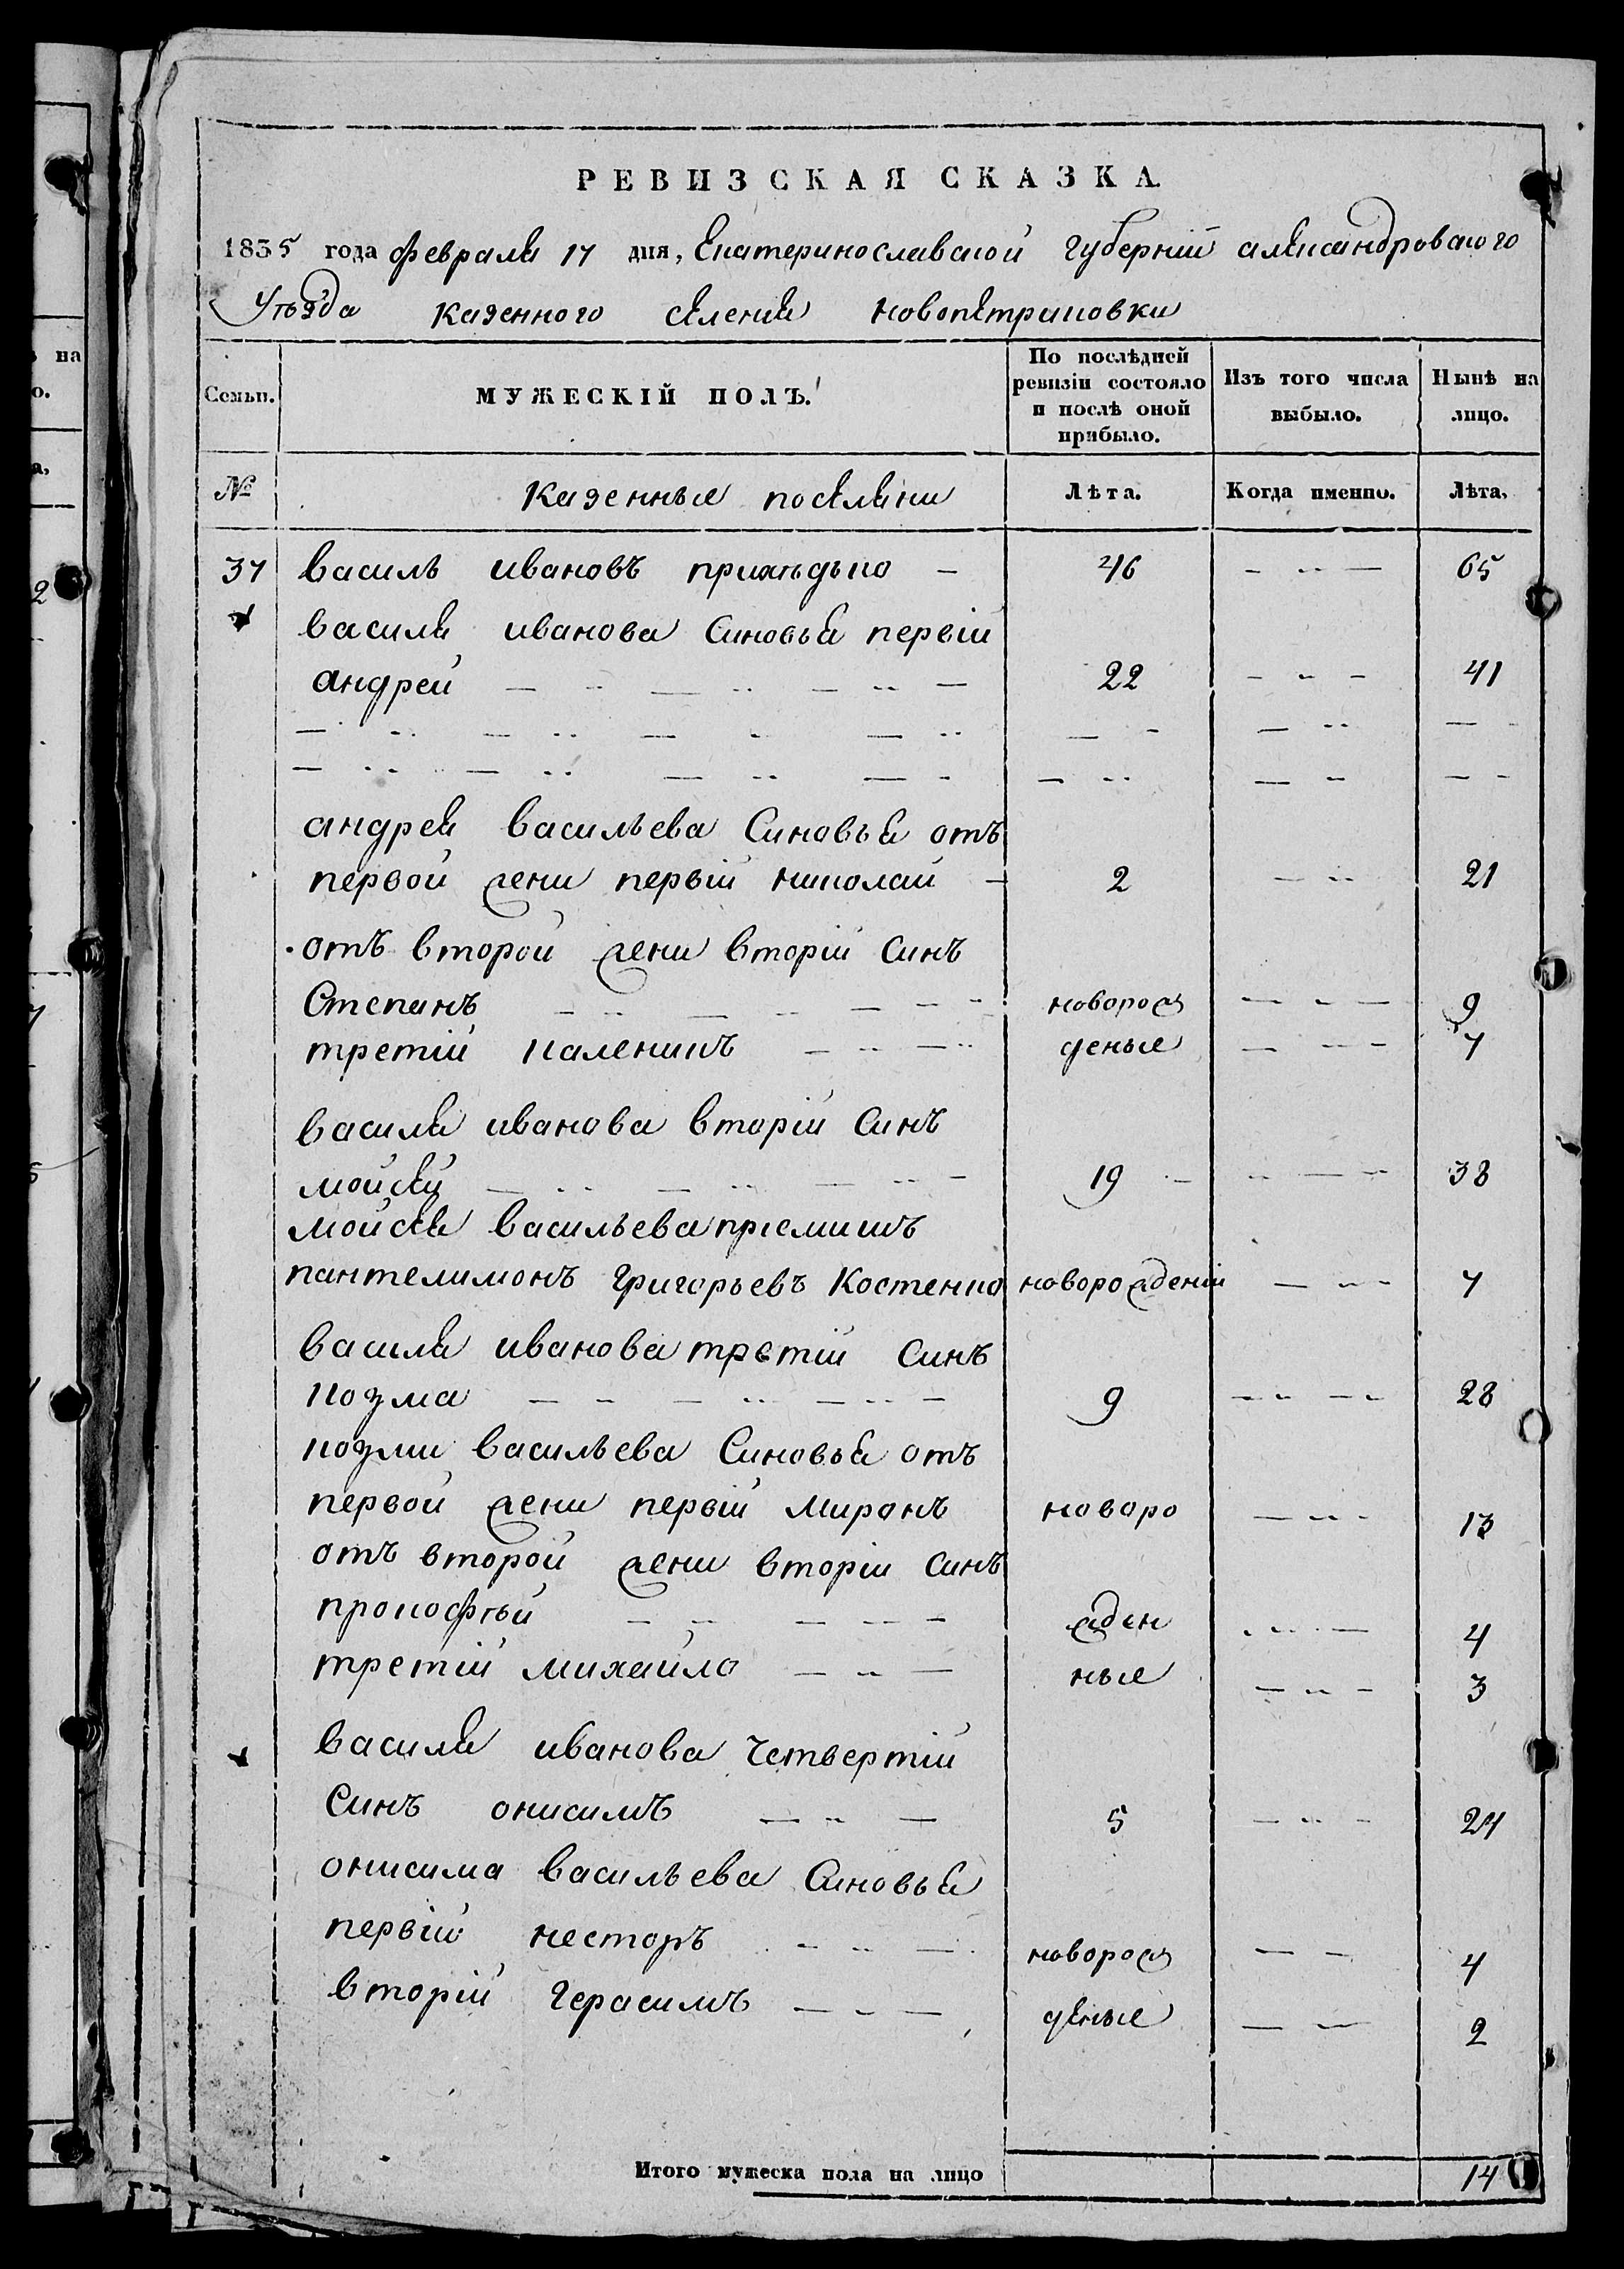 РЕВИЗСКАЯ СКАЗКА.
1835 года февраля 17 дня, Екатеринославской губернiй александровского
Уѣзда казенного селения новопетриковки
Семьи. МУЖЕСКІЙ ПОЛЪ. По послѣдней ревизіи состояло и послѣ оной прибыло. Изъ того числа выбыло. Нынѣ на лицо.
№ казенные поселяни Лѣта. Когда именно. Лѣта.
37 василь ивановъ приходько 46 65
василя иванова синовья первій
андрей 22 41
андрея васильева синовья отъ
первой жени первій николай 2 21
отъ второй жени вторій синъ
Степанъ новорож 9
третій каленикъ деные 7
василя иванова вторій синъ
мойсей 19 38
мойсея васильева пріемишъ
пантелимонъ григорьевъ костенко новорожденій 7
василя иванова третій синъ
козма 9 28
козми васильева синовья отъ
первой жени первій миронъ новоро 13
отъ второй жени вторій синъ
прокофѣй жден 4
третій михайло ные 3
василя иванова четвертій
синъ онисимъ 5 24
онисима васильева синовья
первій несторъ новорож 4
вторій герасимъ деные 2
Итого мужеска пола на лицо 14